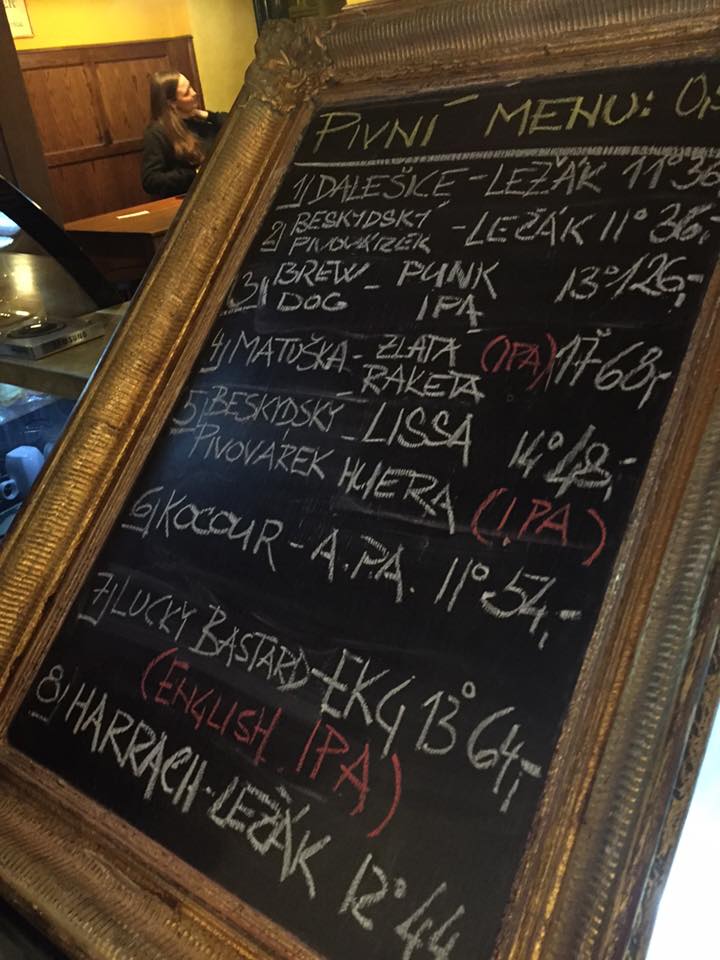 PIVNÍ MENU: 0,
1) DALEŠICE - LEŽÁK 11° 36
2) BESKYDSKÝ - LEŽÁK 11° 36,-
3) BREW - PUNK 13° 126,-
DOG IPA
4) MATUŠKA - ZLATÁ (IPA) 17° 68,-
RAKETA
5) BESKYDSKÝ - LISSÁ 14° 48,-
PIVOVÁREK (I.PA)
6) KOCOUR - A.P.A. 11° 54,-
7) LUCKY BASTARD - EKG 13° 64,-
(ENGLISH IPA)
8) HARRACH - LEŽÁK 12° 44
SAMSUNG